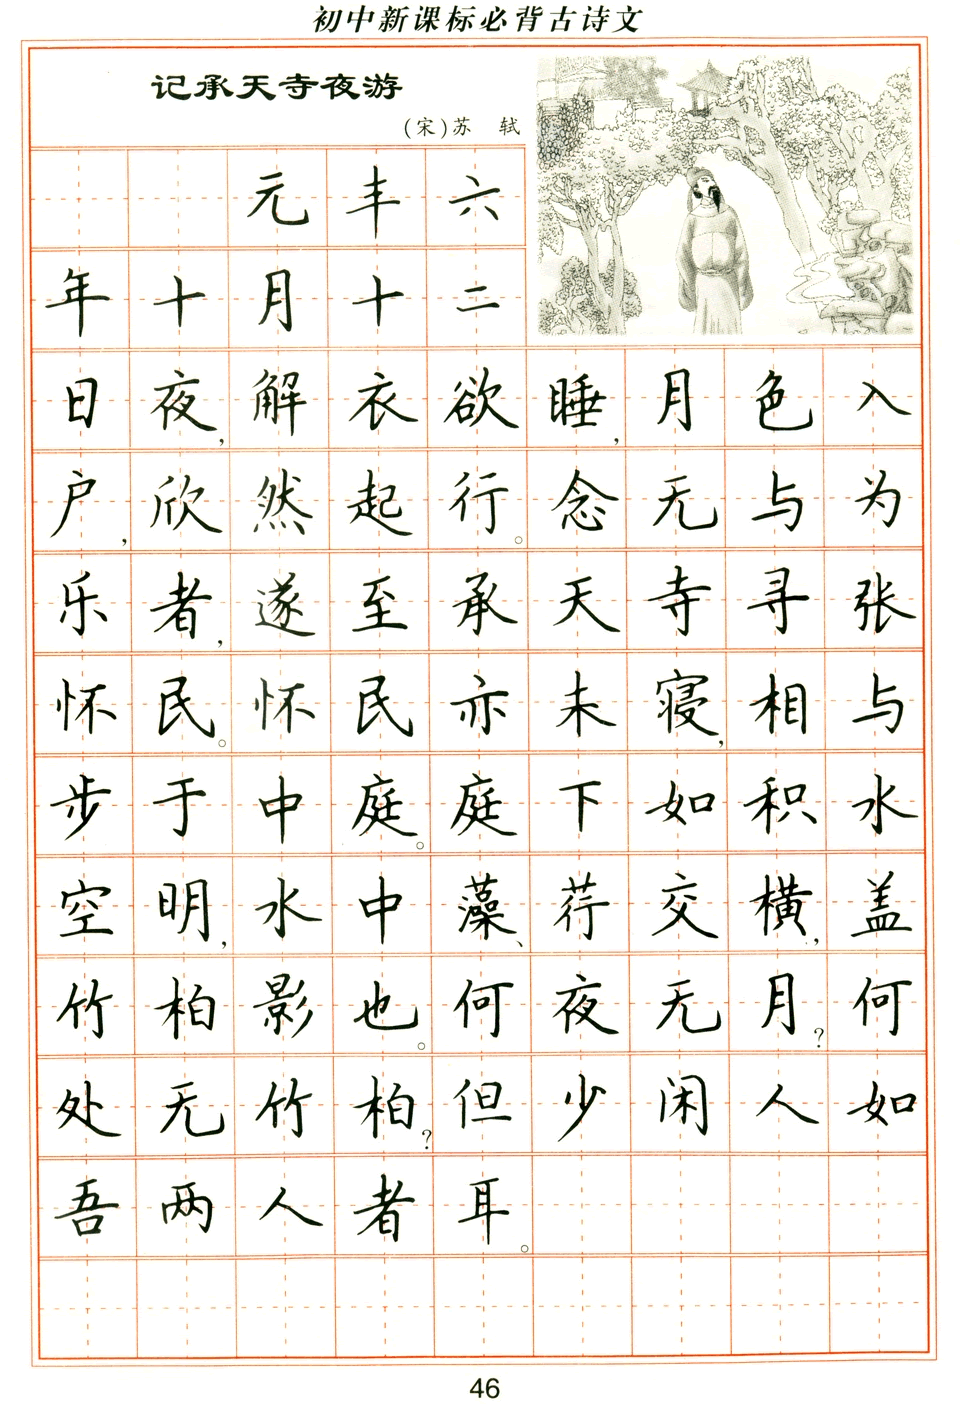 初中新课标必背古诗文
记承天寺夜游
(宋)苏 轼
元丰六
年十月十二
日夜,解衣欲睡,月色入
户,欣然起行。念无与为
乐者,遂至承天寺寻张
怀民。怀民亦未寝,相与
步于中庭。庭下如积水
空明,水中藻、荇交横,盖
竹柏影也。何夜无月?何
处无竹柏?但少闲人如
吾两人者耳。
46